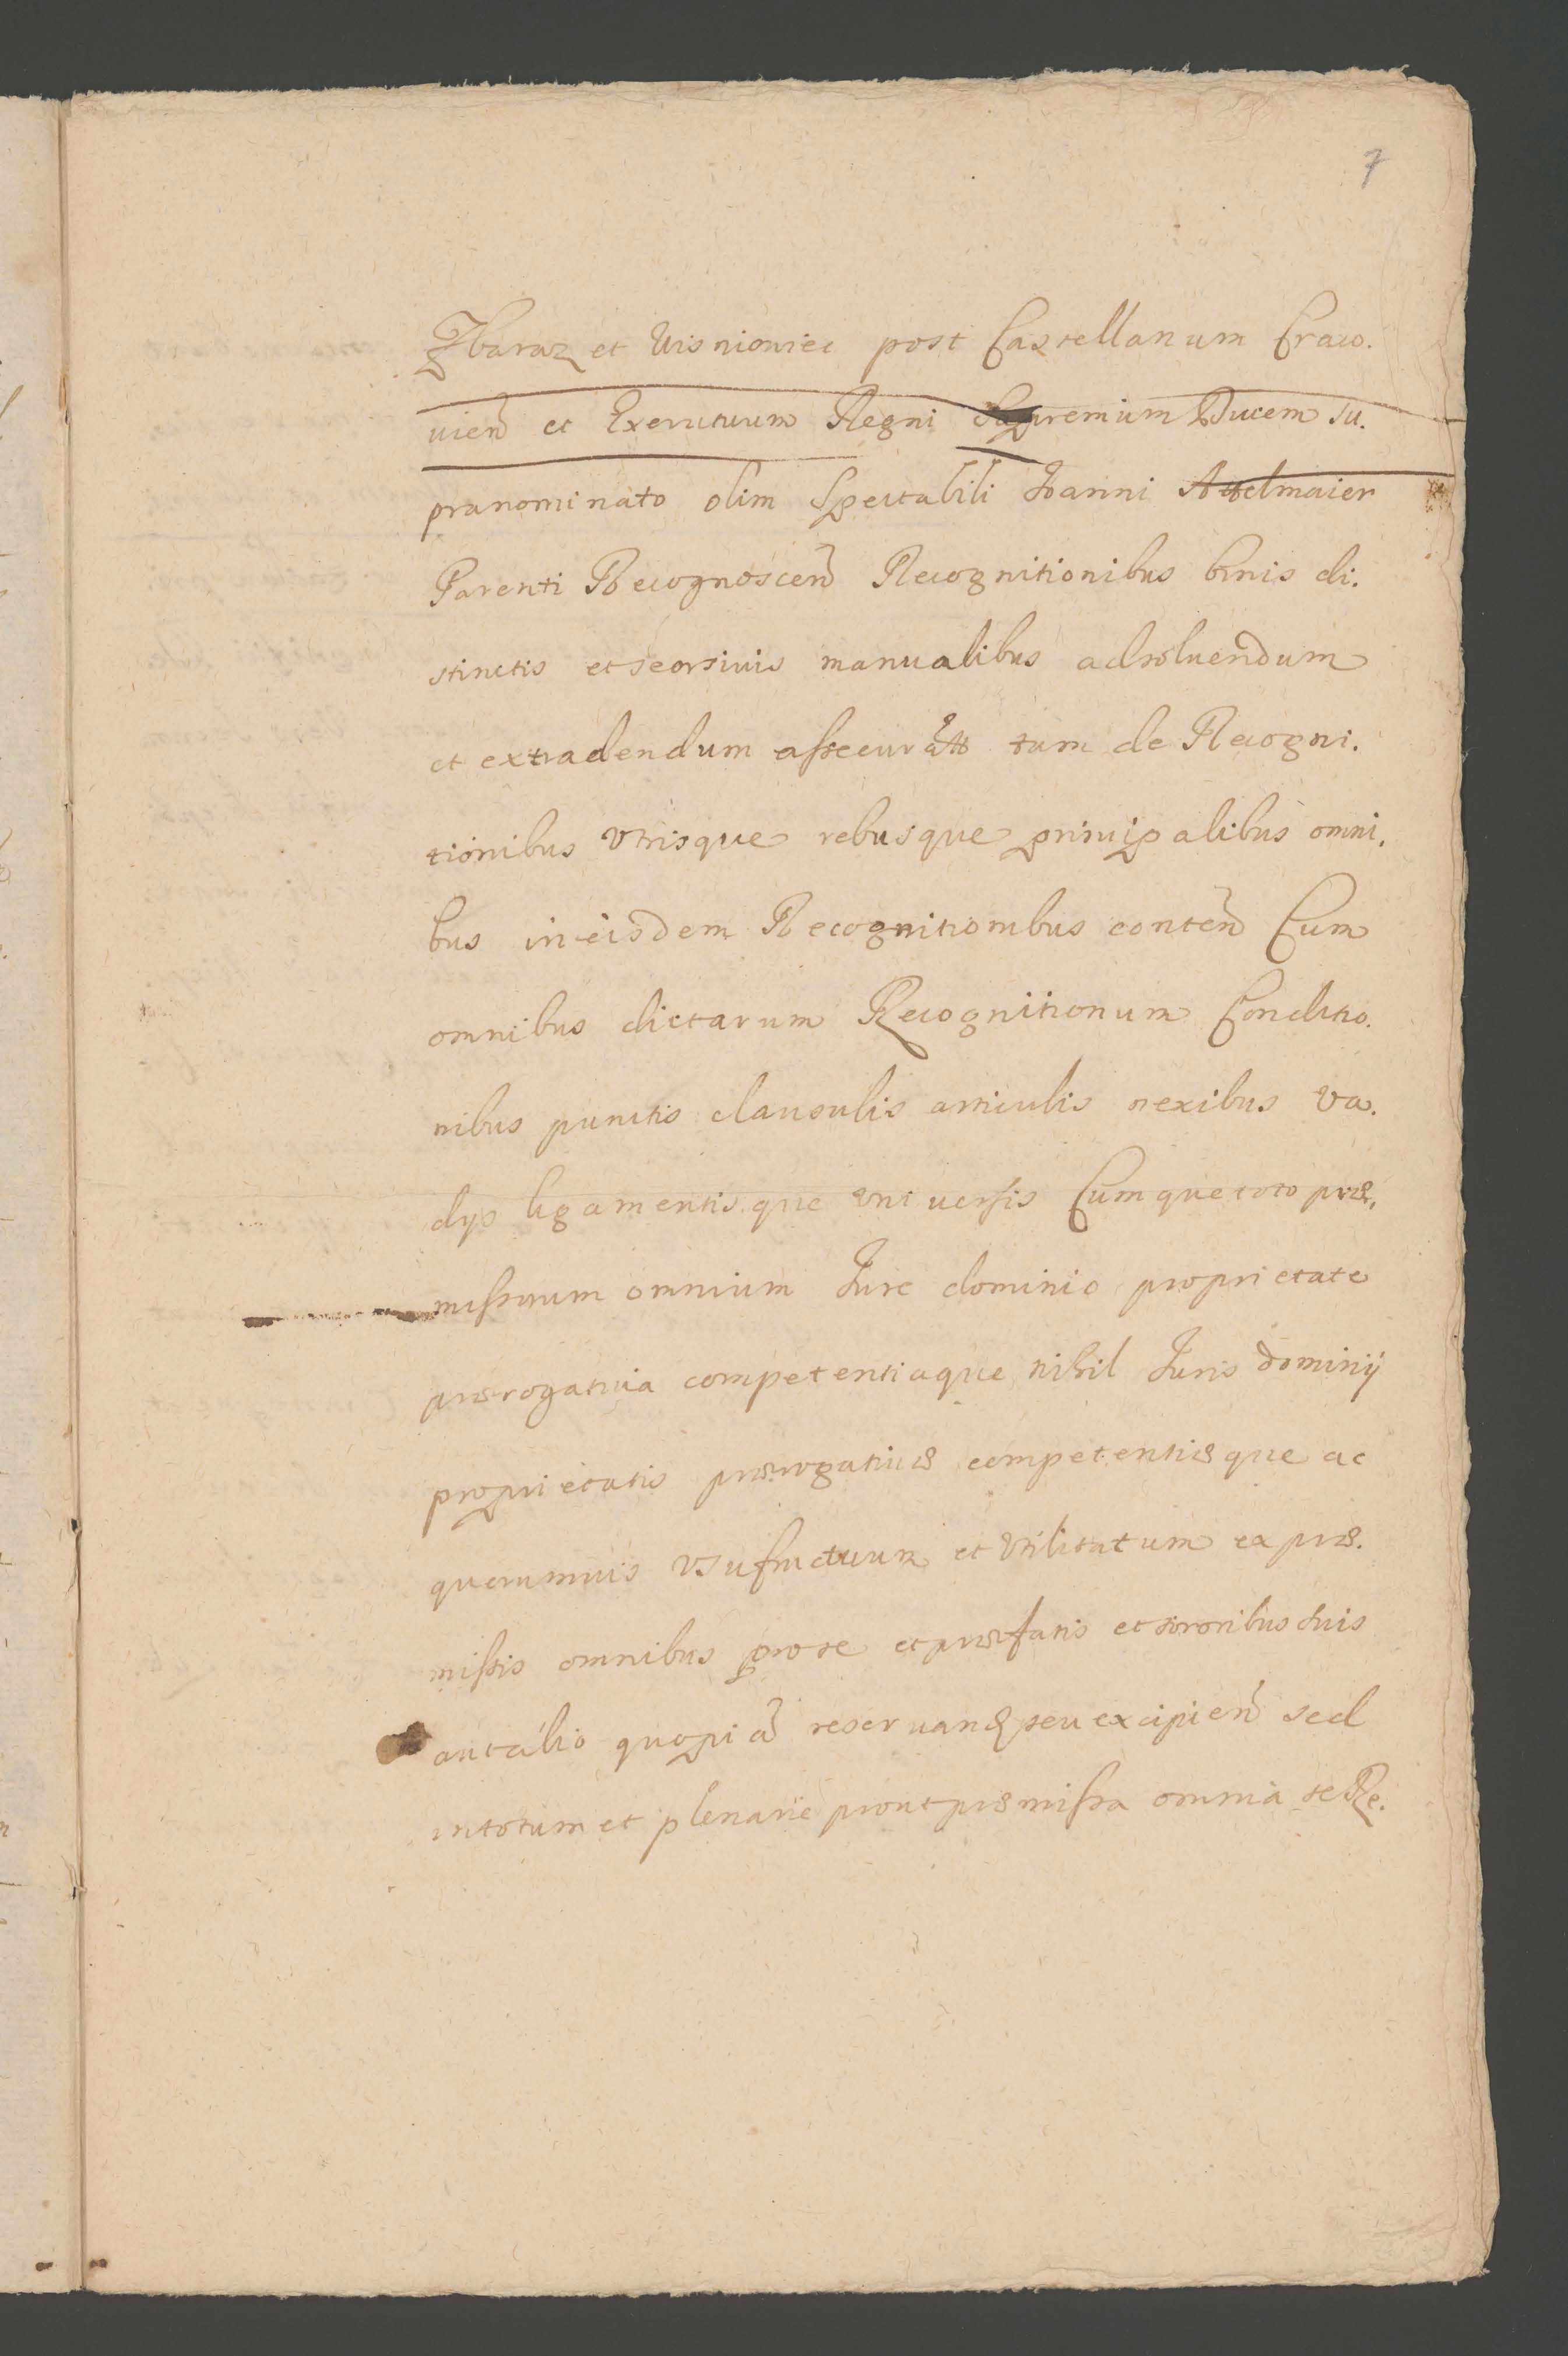 7
Zbaraz et Wisniowiec post Castellanum Craco.
uien̄ et Exercituum Regni Supremum Ducem su.
pranominato olim Spectabili Ioanni Attelmaier
Parenti Recognoscen̄ Recognitionibus binis di.
stinctis et seorsiuis manualibus adsoluendum
et extradendum assecurātt tam de Recogni.
tionibus vtrisque rebusque principalibus omni.
bus in eisdem Recognitionibus conten̄ Cum
omnibus dictarum Recognitionum Conditio.
nibus punctis clausulis articulis nexibus va.
dys ligamentisque vniuersis Cumque toto præ.
missorum omnium Iure dominio proprietate
prærogatiua competentiaque nihil Iuris dominij
proprietatis prærogatiuæ competentiæque ac
quorumuis vsufructuum et vtilitatum ex præ.
missis omnibus pro se et præfatis et sororibus suis
aut alio quopiā reseruan̄ seu excipien̄ sed
in totum et plenarie prout præmissa omnia se Re.